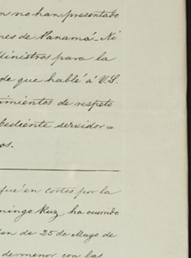 no han presentado
nes de Panamá. Ni
Ministros para la
de que hablé á V.S.
imientos de respeto
bediente servidor =
os.
fué en cortes por la
mingo Ruz, ha ocurrido
en de 25 de Mayo de
de menor con las